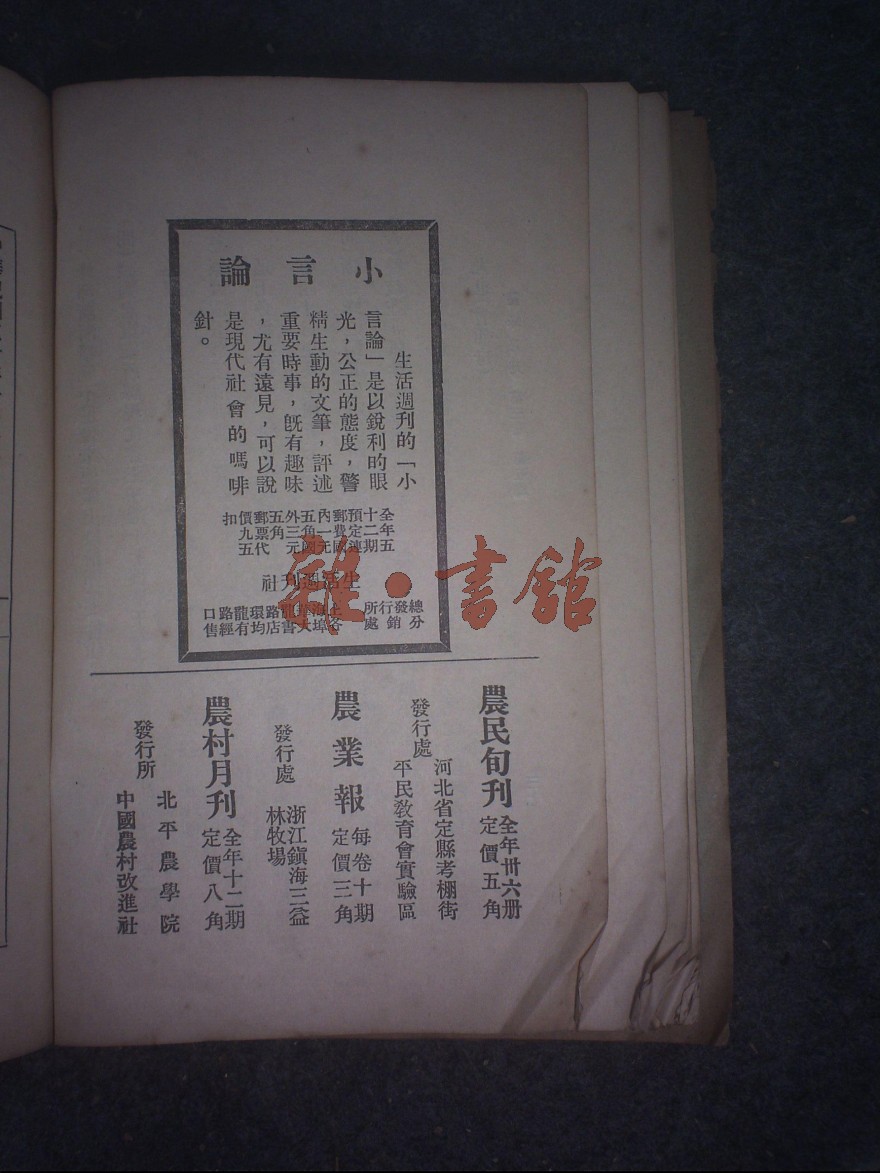 小言論
生活週刊的「小
言論」是以銳利的眼
光，公正的態度，警
精生動的文筆，評述
重要時事，旣有趣味
，尤有遠見，可以說
是現代社會的嗎啡
針。
全年五
十二期
預定連
郵費國
內一元
五角國
外三元
五角
郵票代
價九五
扣
生活週刊社
總發行所 上海華龍路環龍路口
分銷處 各埠大書店均有經售
農民旬刊 全年卅六册
定價五角
發行處 河北省定縣考棚街
平民敎育會實驗區
農業報 每卷十期
定價三角
發行處 浙江鎭海三益
林牧場
農村月刊 全年十二期
定價八角
發行所 北平農學院
中國農村改進社
雜·書舘